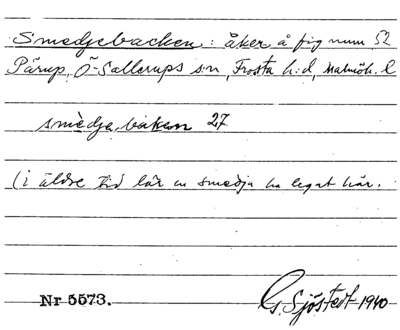 Smedjebacken: åker å fig num 52
Pärup, Ö-Sallerups sn, Frosta h:d, Malmöh. l
smèdjebakan 27
(i äldre tid lär en smedja ha legat här.
Nr 5573.
G. Sjöstedt 1940